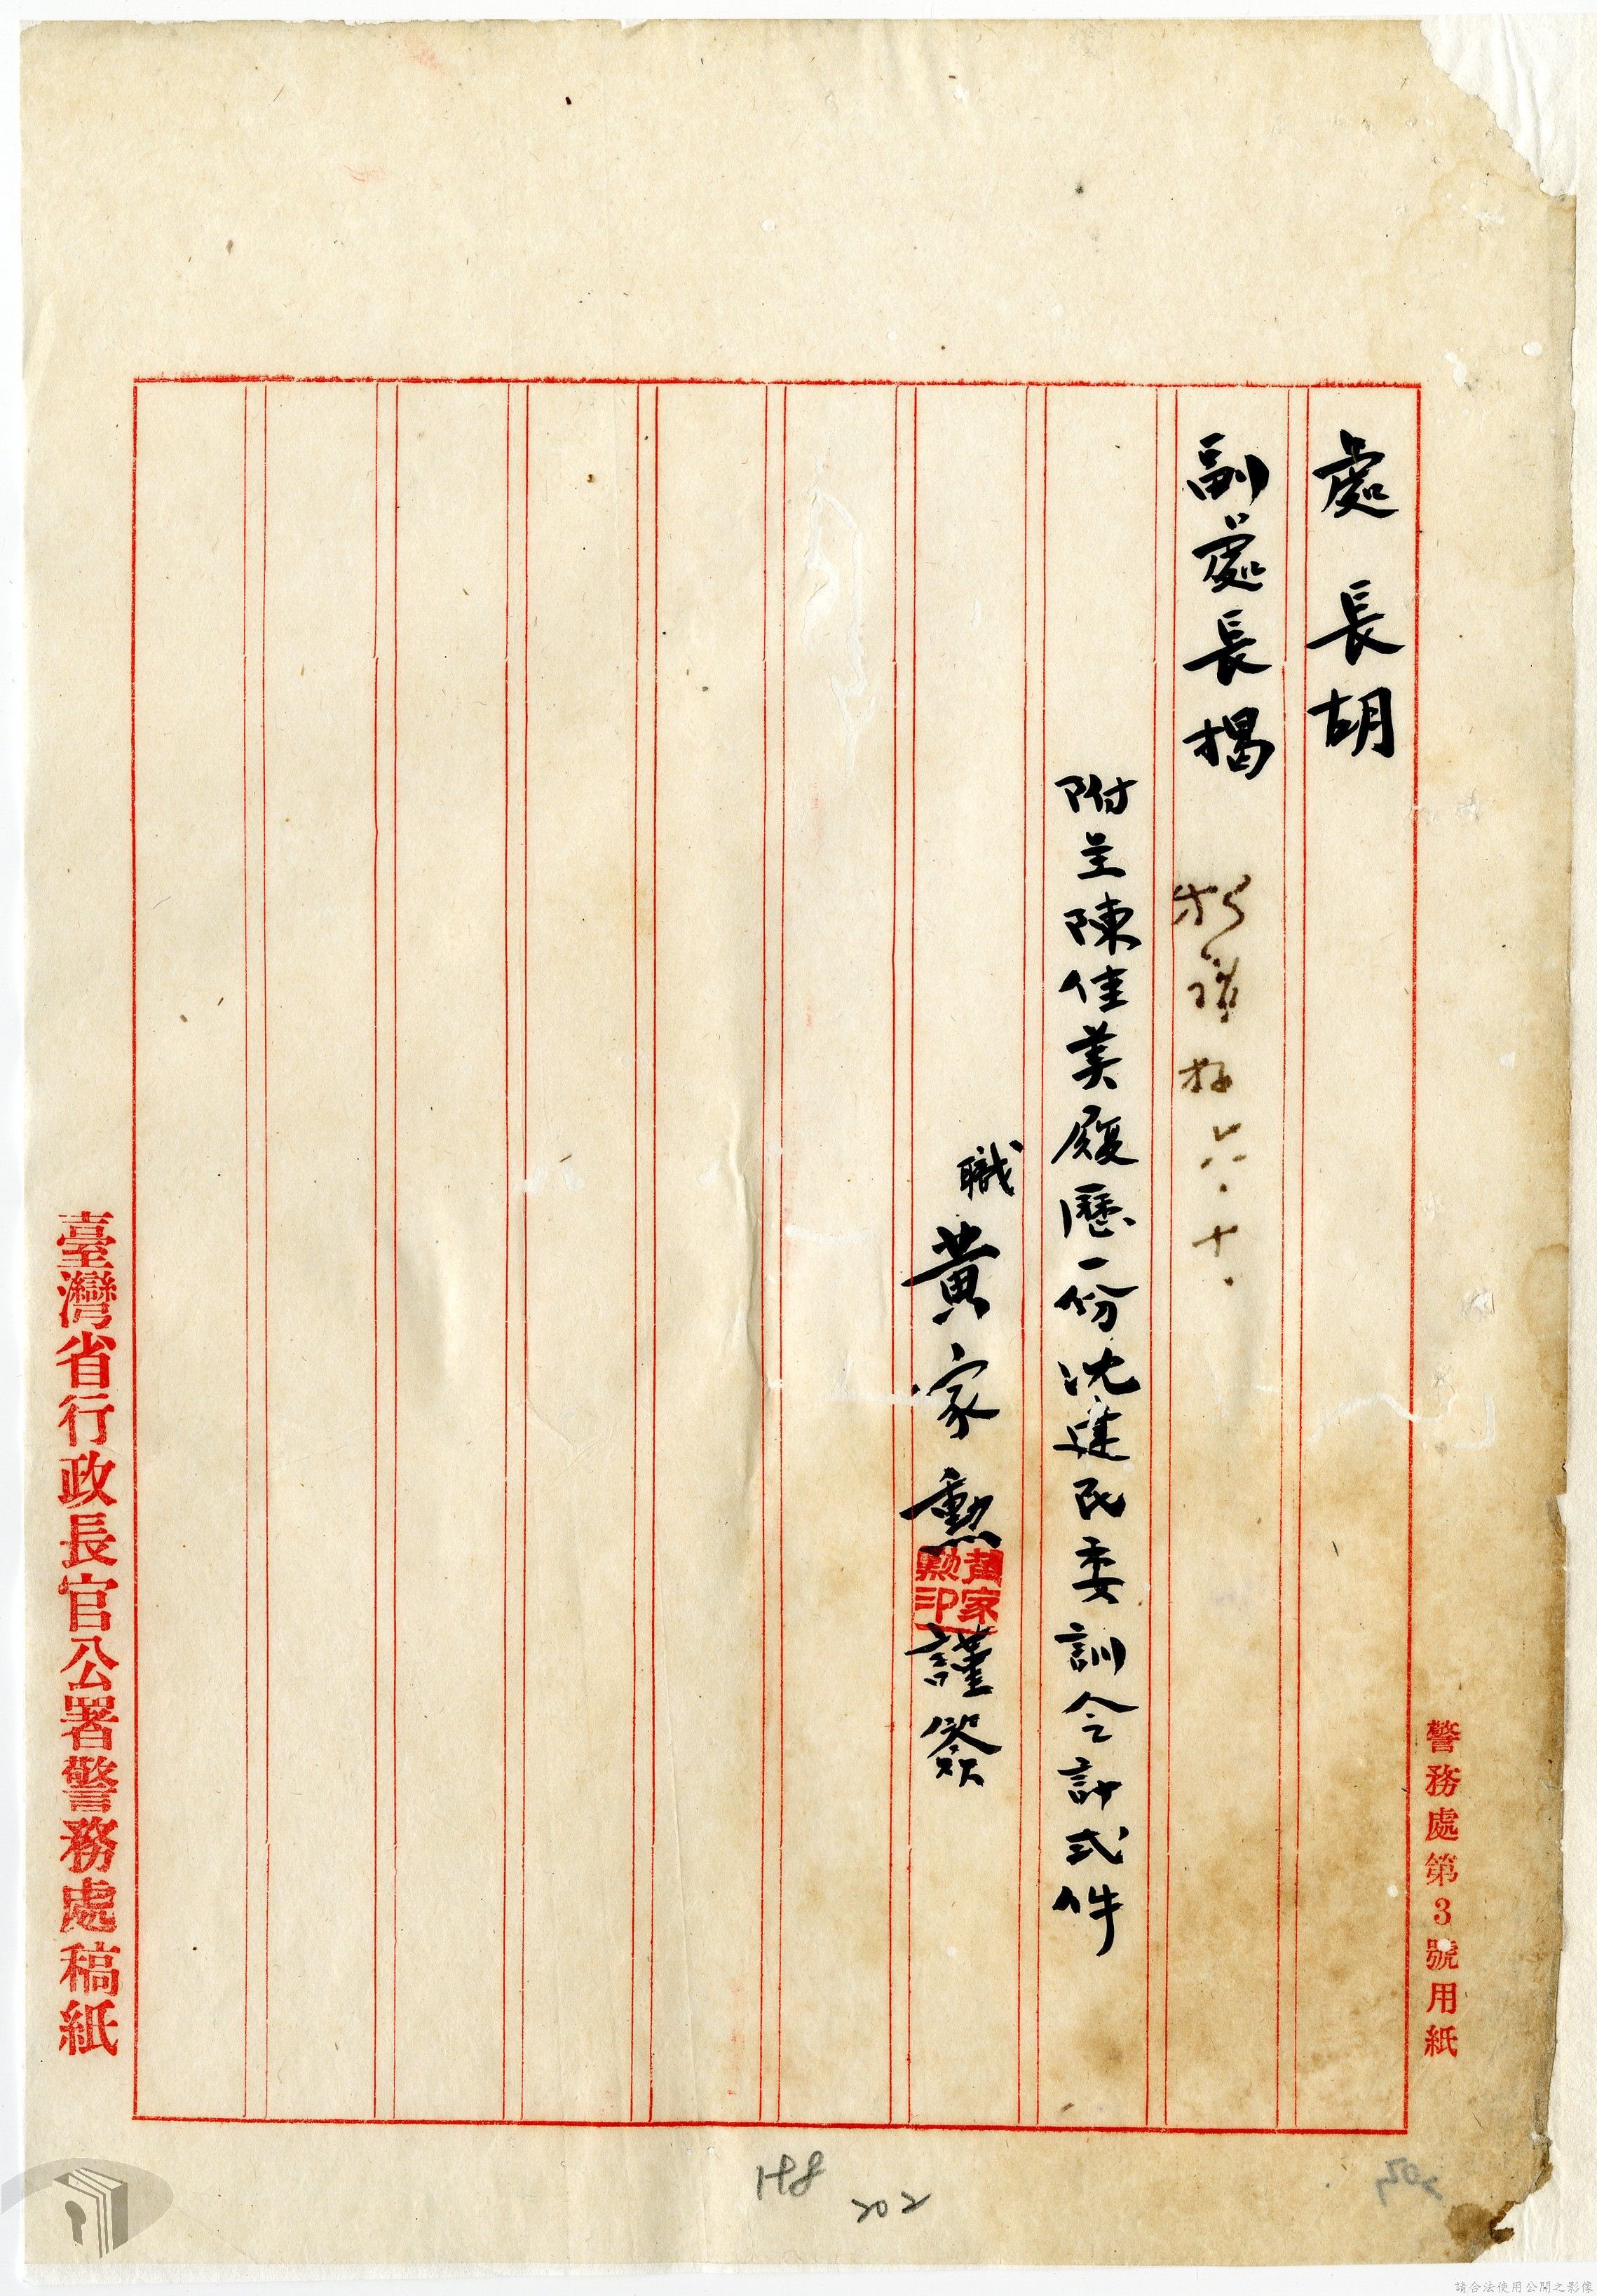 警務處第3號用紙
處長胡
副處長揭
六.十.
附呈陳佳美履歷一份沈建民委訓令計弍件
職黃家勳謹簽
黃家勳印
臺灣省行政長官公署警務處稿紙
148
202
202
請合法使用公開之影像